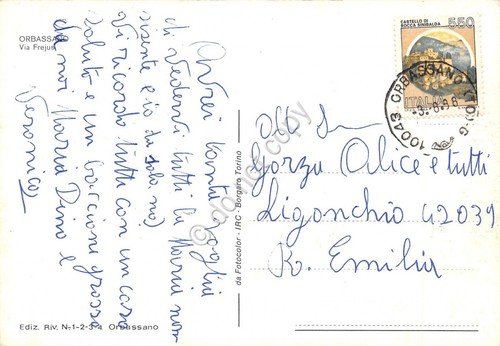 ORBASSANO
Via Frejus
Avrei tanta voglia
di vedervi tutti (a Maria non
sisente e io da solo no)
vi ricordo tutti con un caro
saluto e un baccione grosso
da noi Maria Dino e
Veronica
Ediz. Riv. N. 1-2-3-4 Orbassano
da Fotocolor - IRC - Borgaro Torino
CASTELLO DI
ROCCA SINIBALDA
550
ITALIA
10043 ORBASSANO (TO)
Gorzu Alice e tutti
Ligonchio 42039
R. Emilia